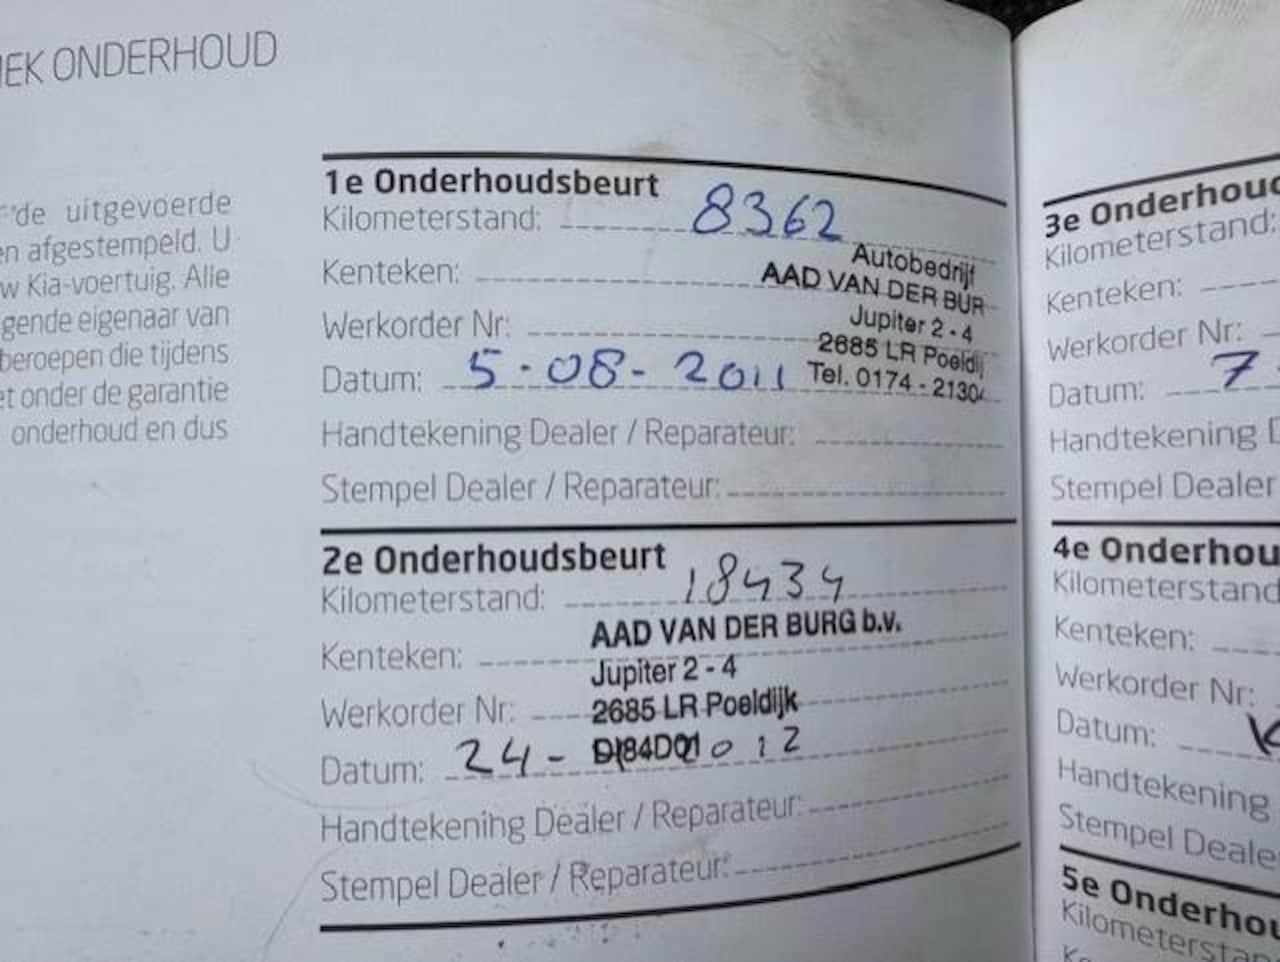 EK ONDERHOUD
de uitgevoerde
en afgestempeld. U
w Kia-voertuig. Alle
gende eigenaar van
beroepen die tijdens
et onder de garantie
onderhoud en dus
1e Onderhoudsbeurt
Kilometerstand: 8362
Autobedrijf
Kenteken: AAD VAN DER BUR
Jupiter 2 - 4
Werkorder Nr:
2685 LR Poeldij
Datum: 5-08-2011 Tel. 0174 - 21304
Handtekening Dealer / Reparateur:
Stempel Dealer / Reparateur:
2e Onderhoudsbeurt
Kilometerstand: 18434
AAD VAN DER BURG b.v.
Kenteken:
Jupiter 2 - 4
Werkorder Nr: 2685 LR Poeldijk
Datum: 24- 012
Handtekening Dealer / Reparateur:
Stempel Dealer / Reparateur:
3e Onderhoud
Kilometerstand:
Kenteken:
Werkorder Nr:
Datum: 7
Handtekening D
Stempel Dealer
4e Onderhou
Kilometerstand
Kenteken:
Werkorder Nr:
Datum:
Handtekening
Stempel Deale
5e Onderhou
Kilometerstan